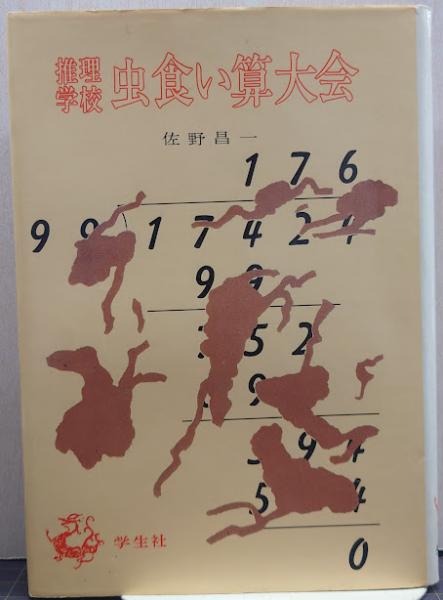 推理学校 虫食い算大会
佐野昌一
176
99 17424
99
752
9
594
5 4
0
学生社